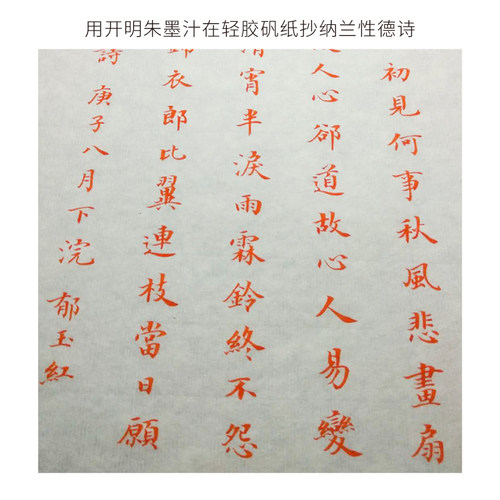 用开明朱墨汁在轻胶矾纸抄纳兰性德诗
初見何事秋風悲畫扇
人心郤道故心人易變
清宵半淚雨霖鈴終不怨
錦衣郎比翼連枝當日願
詩 庚子八月下浣
郁玉紅